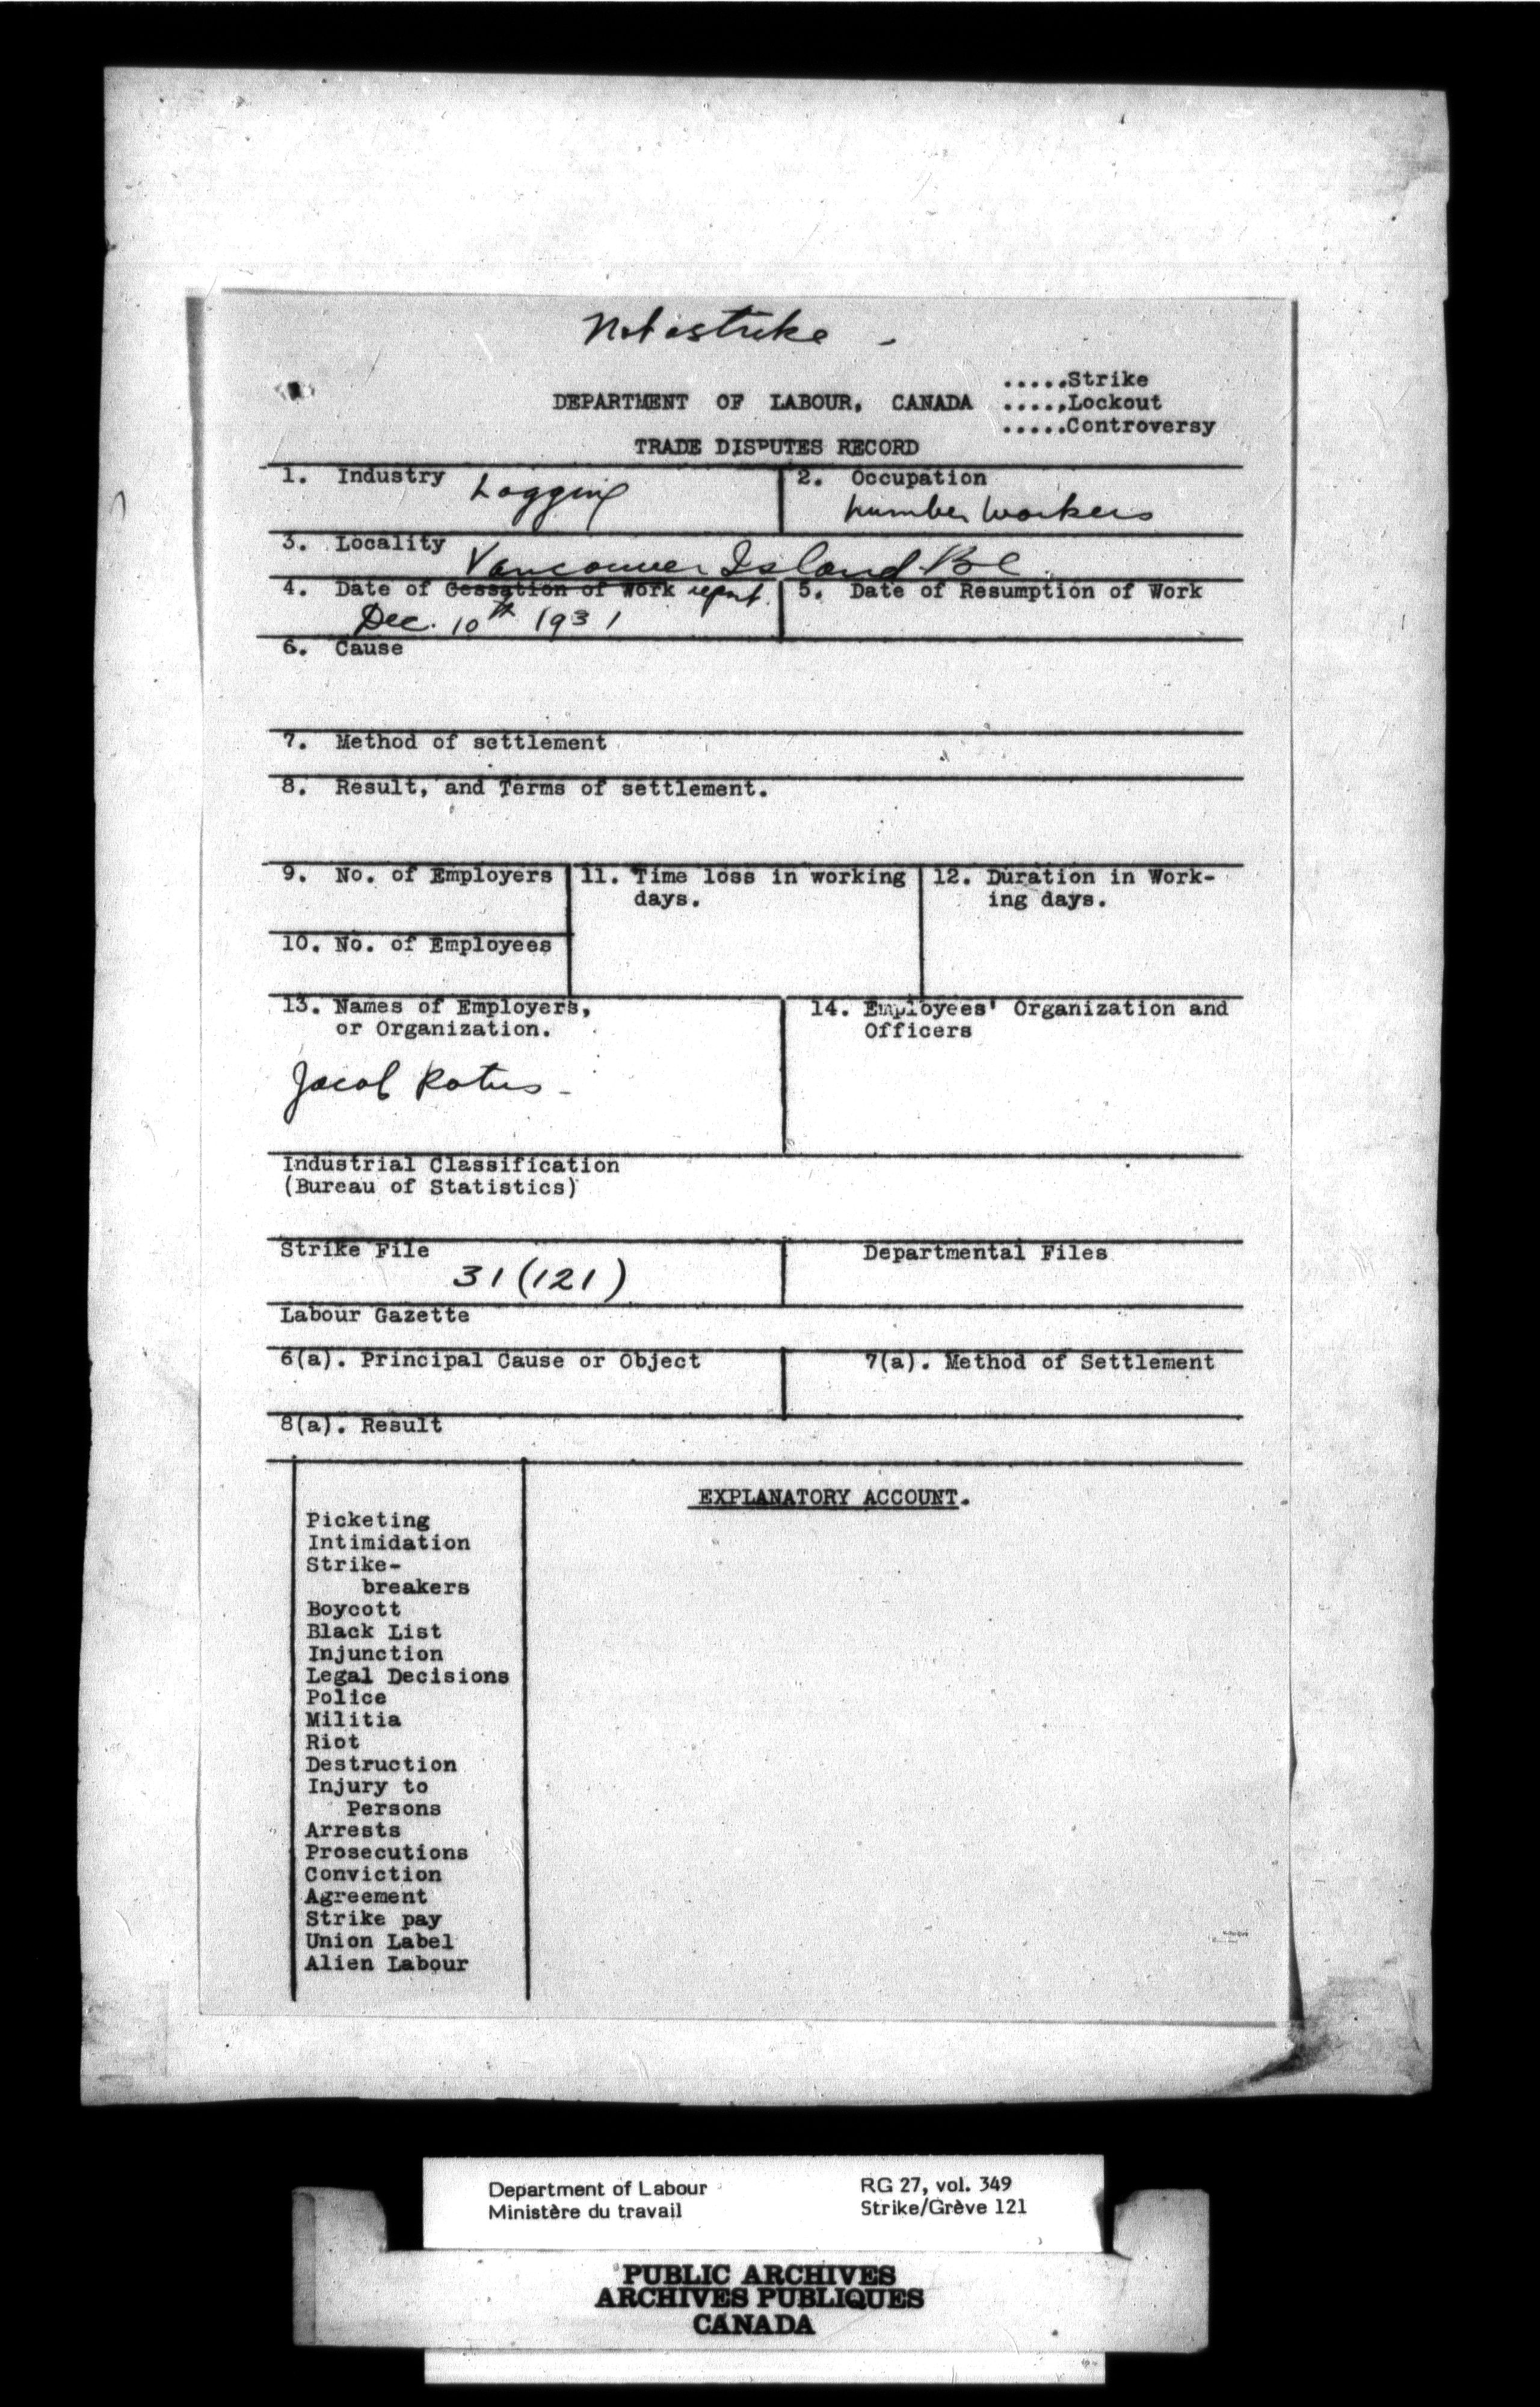 Not a strike -
.....Strike
DEPARTMENT OF LABOUR, CANADA .....Lockout
.....Controversy
TRADE DISPUTES RECORD
1. Industry Logging 2. Occupation
Lumber Workers
3. Locality Vancouver Island BC
4. Date of Cessation of Work report. 5. Date of Resumption of Work
Dec. 10th 1931
6. Cause
7. Method of settlement
8. Result, and Terms of settlement.
9. No. of Employers 11. Time loss in working 12. Duration in Work-
days. ing days.
10. No. of Employees
13. Names of Employers, 14. Employees' Organization and
or Organization. Officers
Jacob
Industrial Classification
(Bureau of Statistics)
Strike File Departmental Files
31 (121)
Labour Gazette
6(a). Principal Cause or Object 7(a). Method of Settlement
8(a). Result
EXPLANATORY ACCOUNT.
Picketing
Intimidation
Strike-
breakers
Boycott
Black List
Injunction
Legal Decisions
Police
Militia
Riot
Destruction
Injury to
Persons
Arrests
Prosecutions
Conviction
Agreement
Strike pay
Union Label
Alien Labour
Department of Labour RG 27, vol. 349
Ministère du travail Strike/Grève 121
PUBLIC ARCHIVES
ARCHIVES PUBLIQUES
CANADA